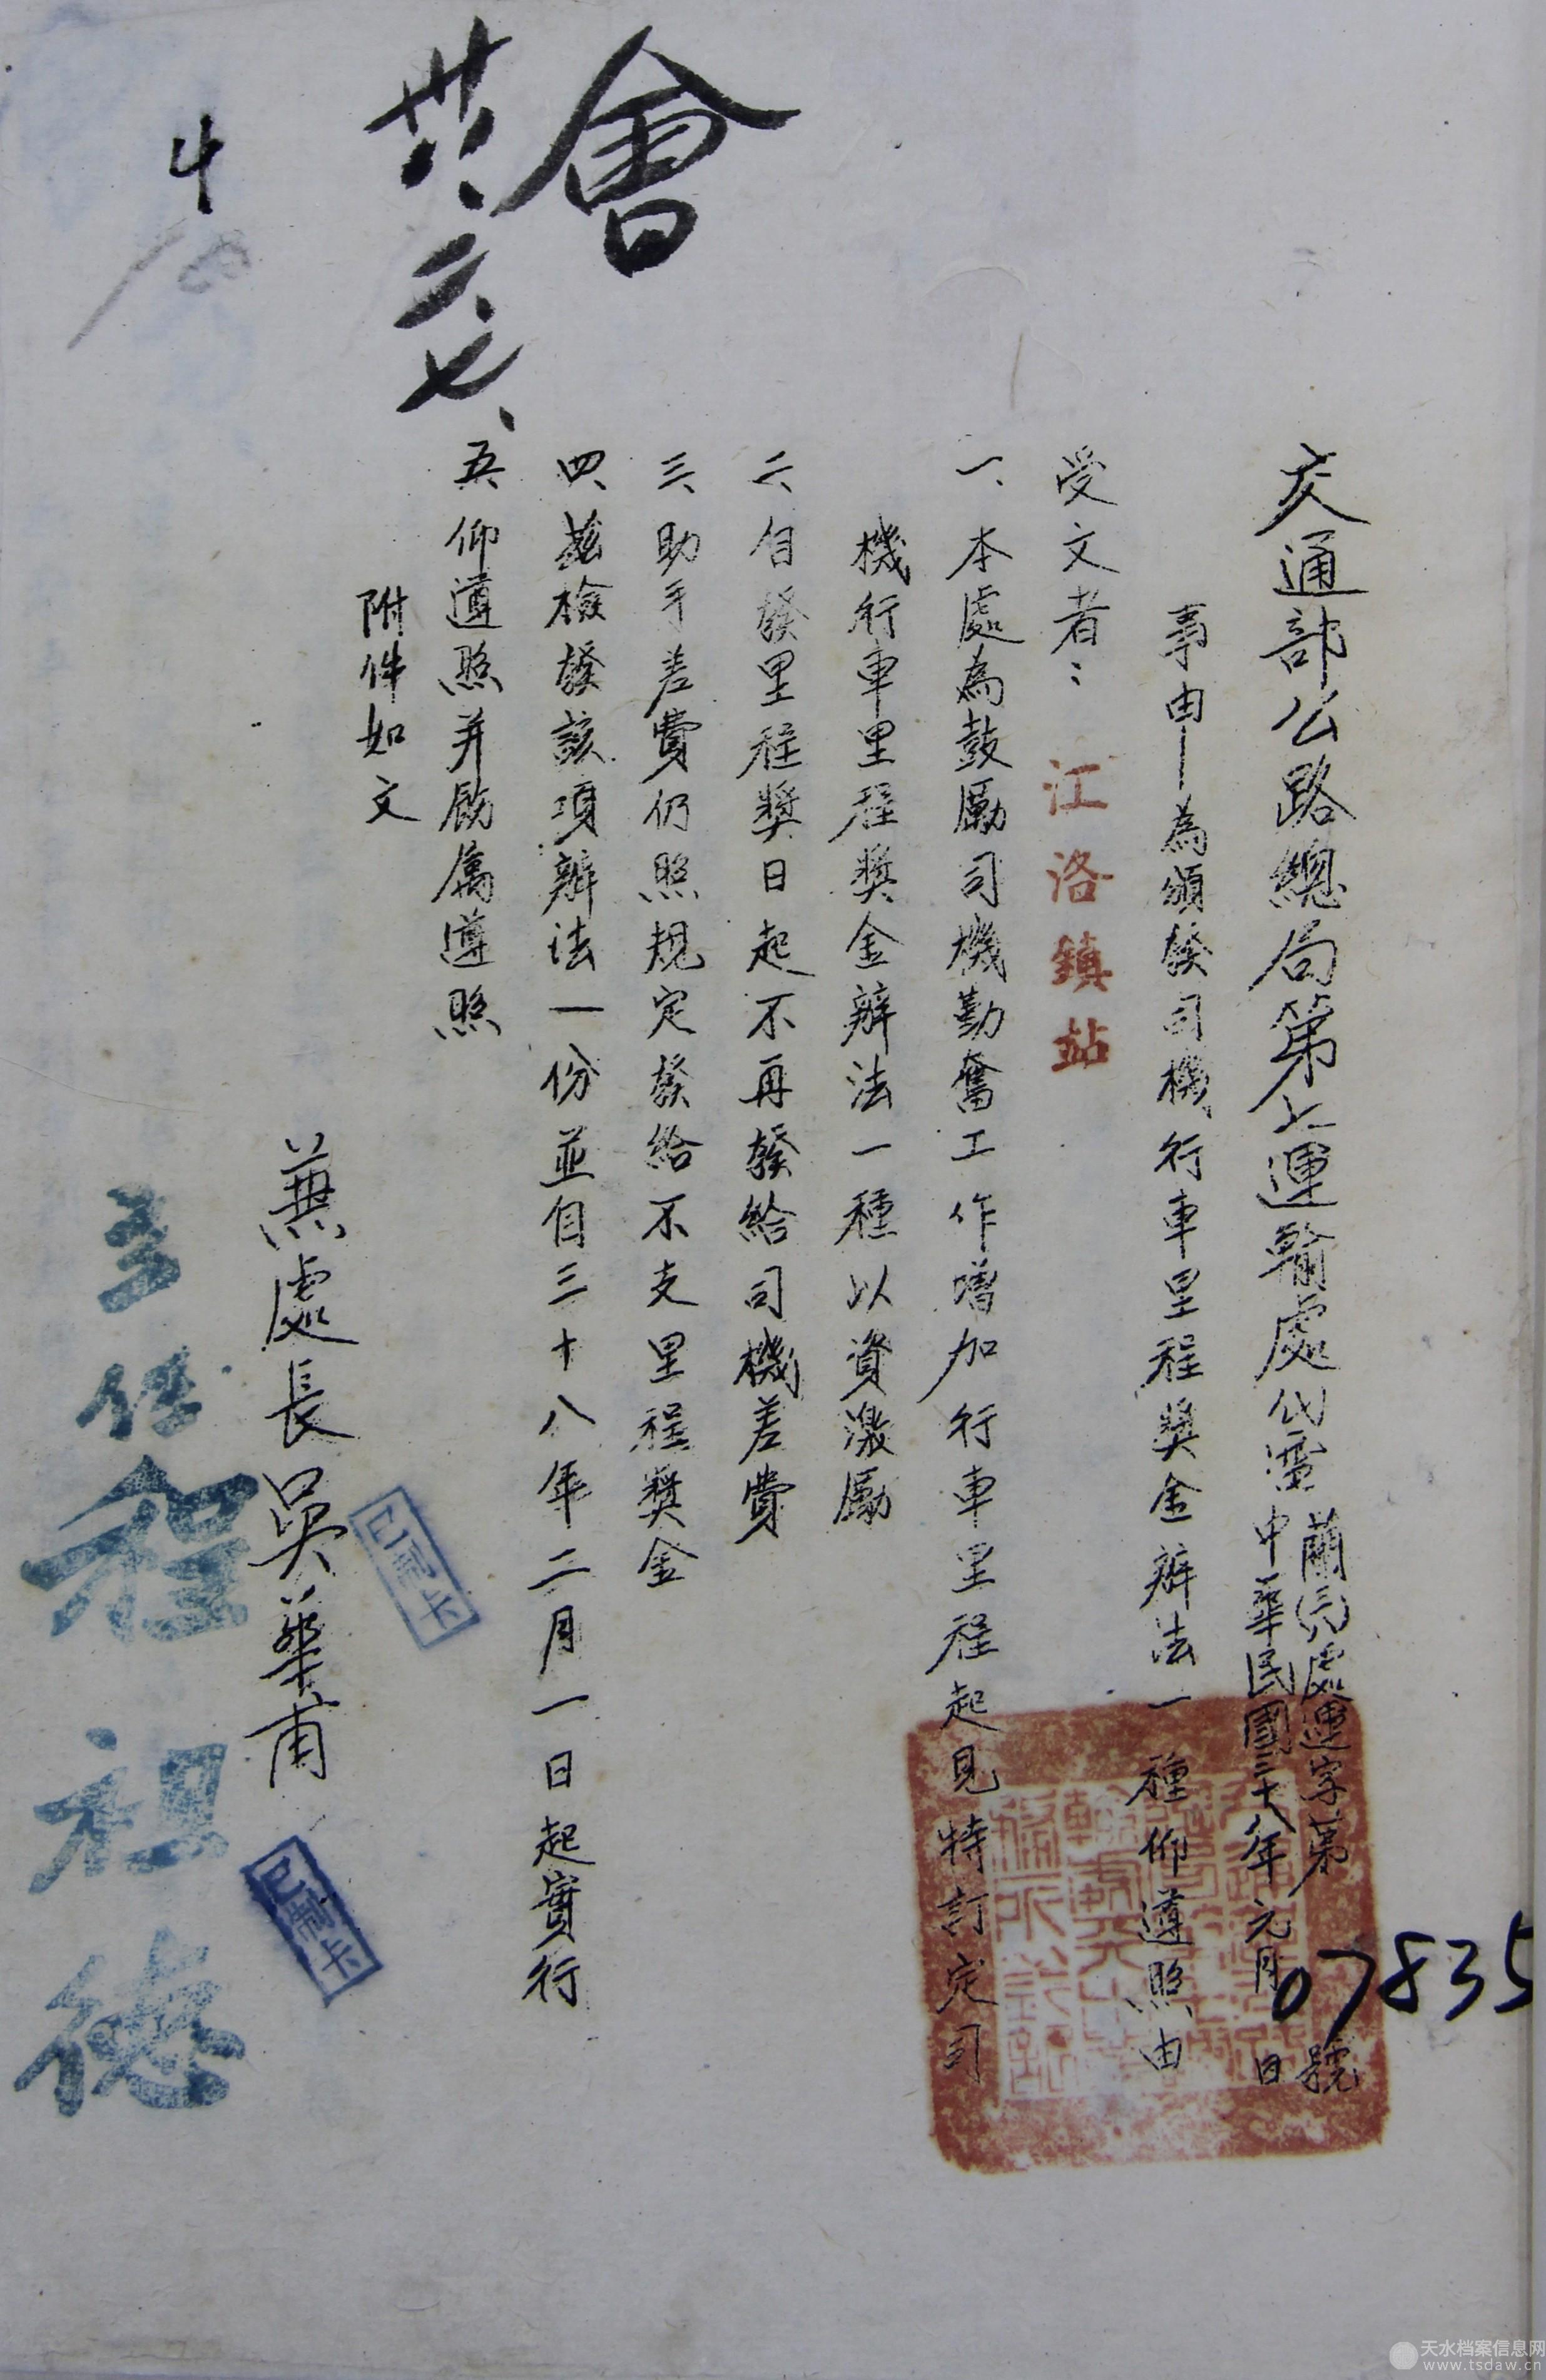 交通部公路總局第七運輸處代電
蘭處運字第07835號
中華民國三十八年元月日
事由—為頒發司機行車里程獎金辦法一種仰遵照由
受文者：江洛鎮站
一、本處為鼓勵司機勤奮工作增加行車里程起見特訂定司
機行車里程獎金辦法一種以資激勵
二、自發里程獎日起不再發給司機差費
三、助手差費仍照規定發給不支里程獎金
四、茲檢發該項辦法一份並自三十八年二月一日起實行
五、仰遵照并飭屬遵照
附件如文
兼處長吳華甫
主任程祖德
會
卅八、二、七、
4
天水档案信息网
www.tsdaw.cn